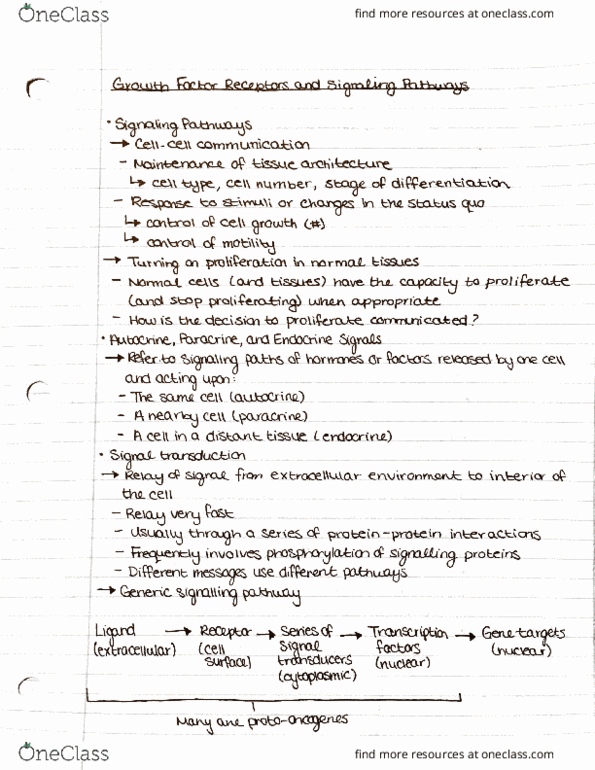 OneClass
find more resources at oneclass.com
Growth Factor Receptors and Signaling Pathways
• Signaling Pathways
→ Cell-cell communication
- Maintenance of tissue architecture
↳ cell type, cell number, stage of differentiation
- Response to stimuli or changes in the status quo
↳ control of cell growth (#)
↳ control of motility
→ Turning on proliferation in normal tissues
- Normal cells (and tissues) have the capacity to proliferate
(and stop proliferating) when appropriate
- How is the decision to proliferate communicated?
• Autocrine, Paracrine, and Endocrine Signals
→ Refer to signaling paths of hormones or factors released by one cell
and acting upon:
- The same cell (autocrine)
- A nearby cell (paracrine)
- A cell in a distant tissue (endocrine)
• Signal transduction
→ Relay of signal from extracellular environment to interior of
the cell
- Relay very fast
- Usually through a series of protein-protein interactions
- Frequently involves phosphorylation of signalling proteins
- Different messages use different pathways
→ Generic signalling pathway
Ligand → Receptor → Series of → Transcription → Gene targets
(extracellular) (cell signal factors (nuclear)
surface) transducers (nuclear)
(cytoplasmic)
Many are proto-oncogenes
OneClass
find more resources at oneclass.com